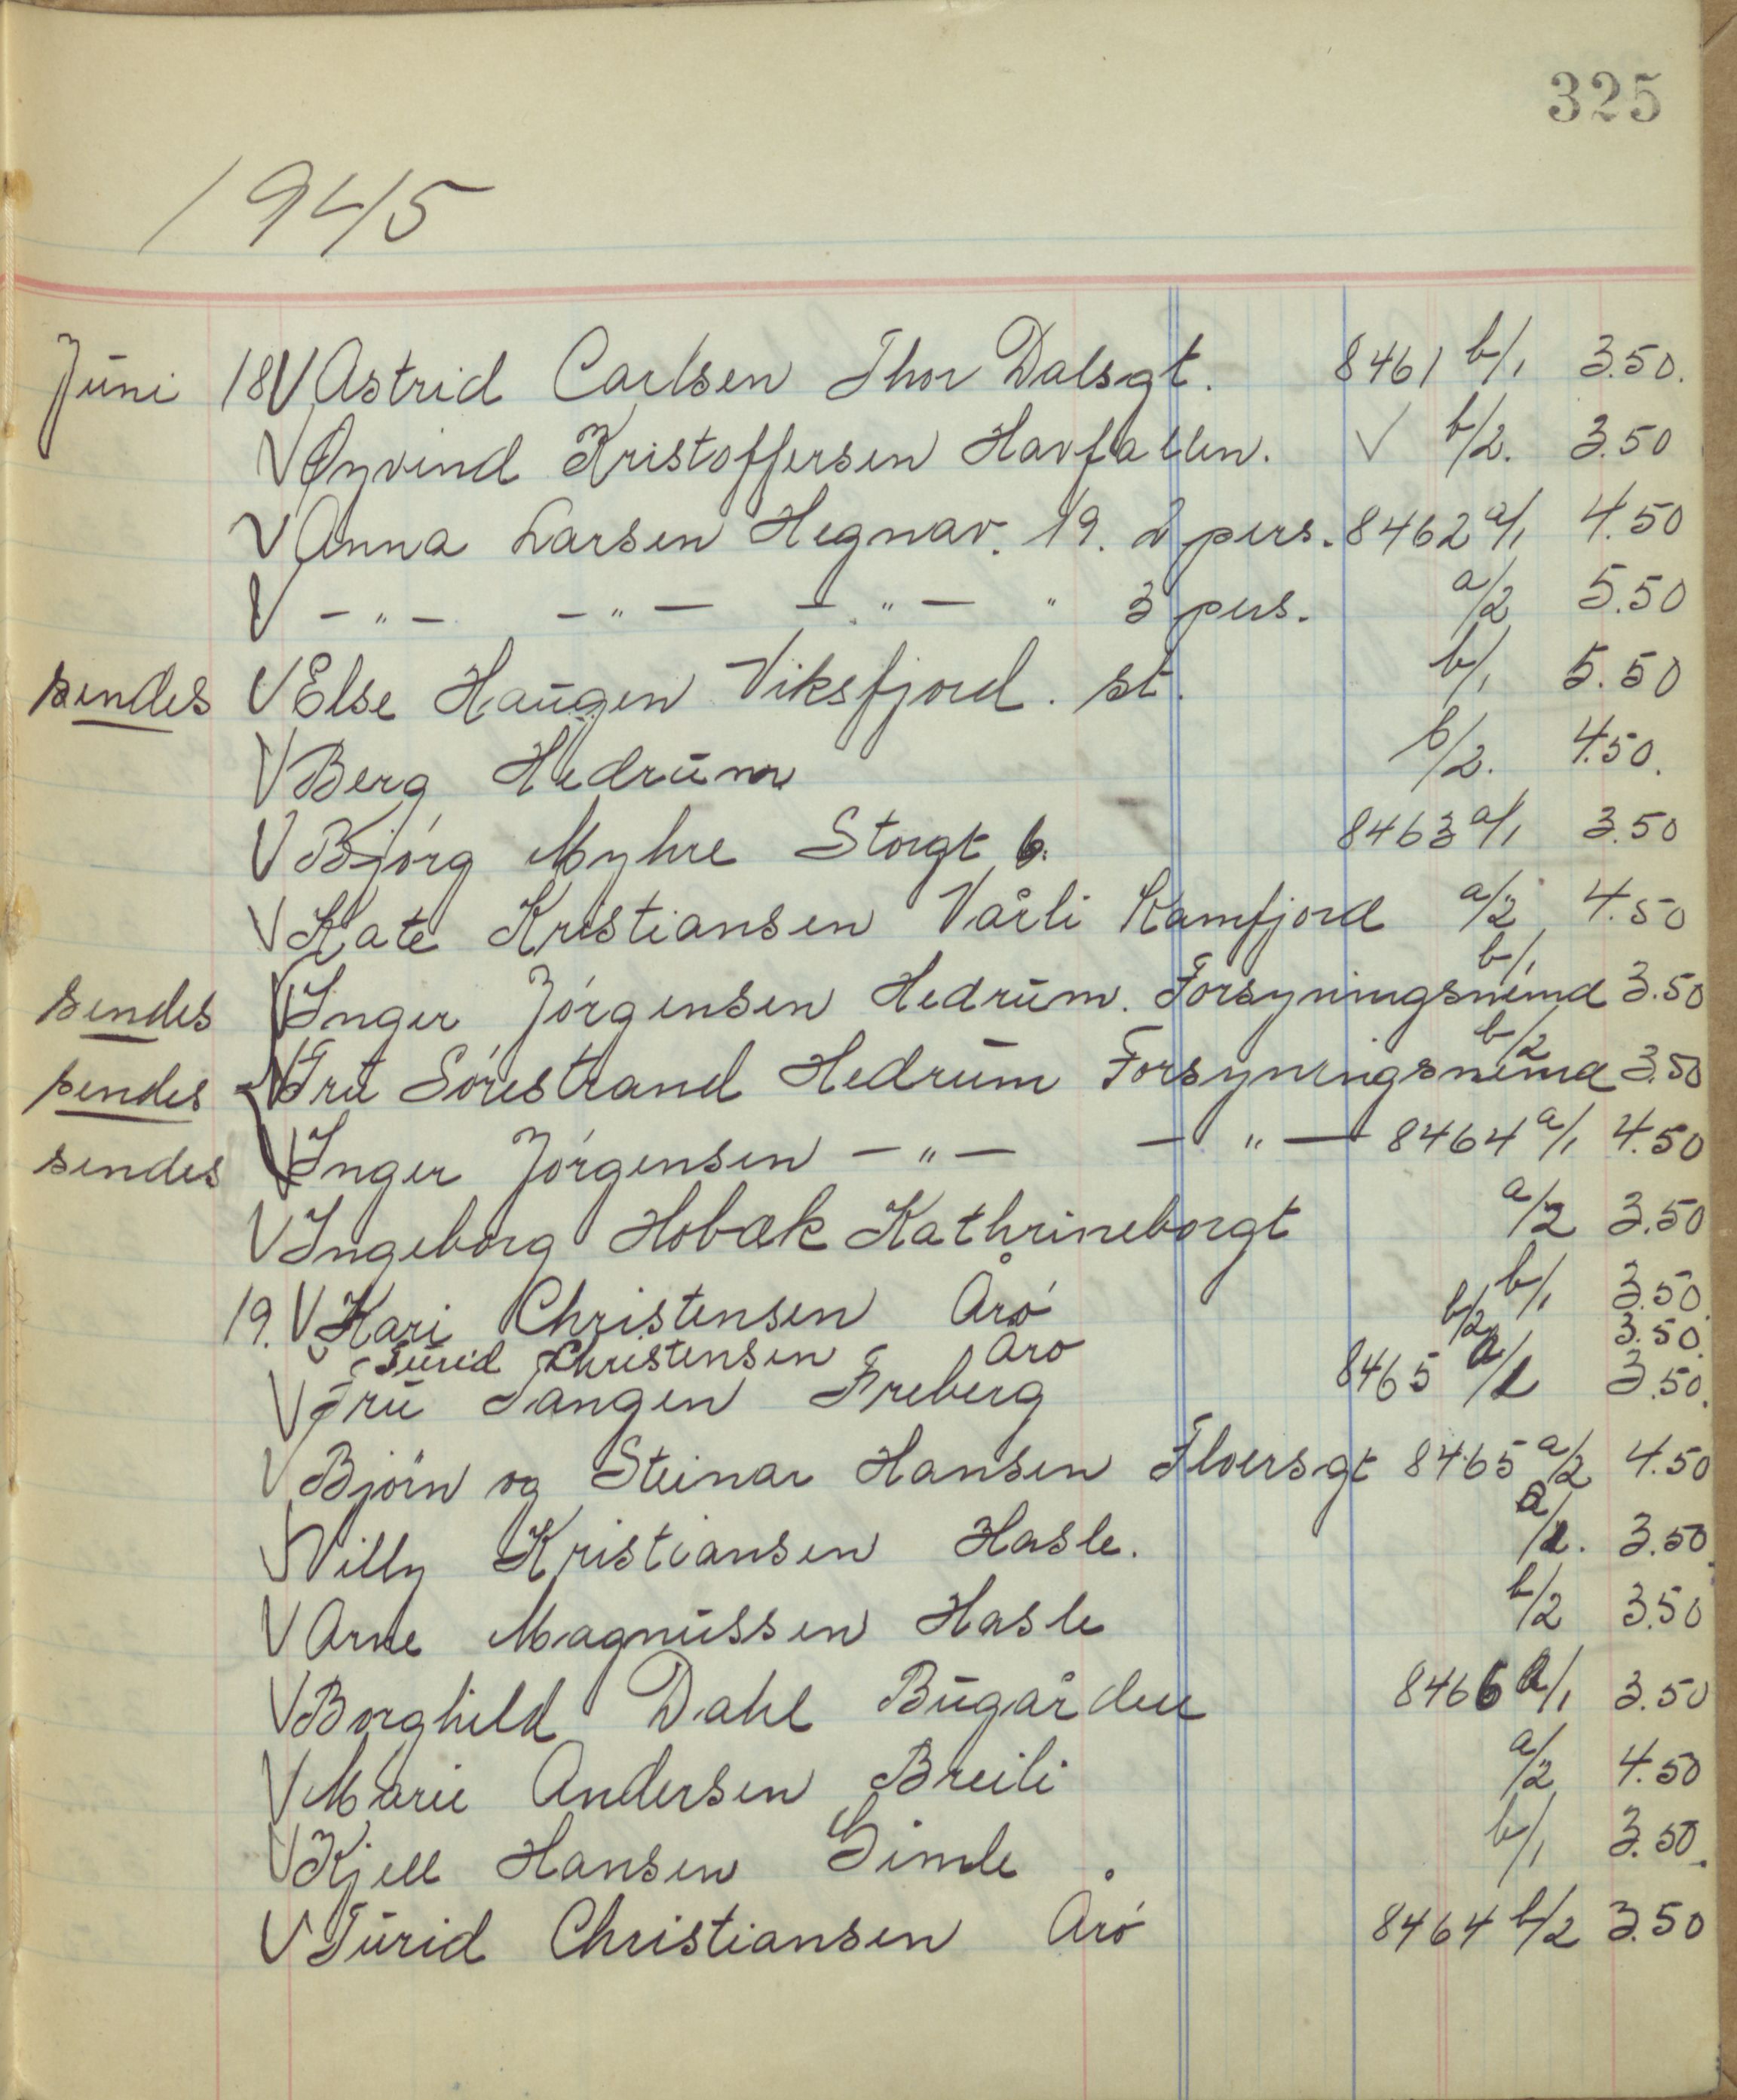 325
1945
Juni 18 V Astrid Carlsen Thor Dalsgt. 8461 b/1 3.50.
V Øyvind Kristoffersen Havfallen. √ b/2. 3.50
V Anna Larsen Hegnav. 19. 2 pers. 8462 a/1 4.50
V — " — — " — — " — " 3 pers. a/2 5.50
sendes V Else Haugen Viksfjord. st. b/1 5.50
V Berg Hedrum b/2. 4.50.
V Bjørg Myhre Storgt 6. 8463 a/1 3.50
V Kate Kristiansen Vårli Kamfjord a/2 4.50
sendes V Inger Jörgensen Hedrum. Forsyningsnemd b/1 3.50
sendes V Fru Sörestrand Hedrum Forsyningsnemd b/2 3.50
sendes V Inger Jörgensen — " — — " — 8464 a/1 4.50
V Ingeborg Hobæk Kathrineborgt a/2 3.50
19. V Kari Christensen Årö b/1 3.50.
V Turid Christensen Årö b/2 3.50.
V Fru Tangen Freberg 8465 a/1 3.50.
V Björn og Steinar Hansen Floersgt 8465 a/2 4.50
V Willy Kristiansen Hasle. a/1. 3.50.
V Arne Magnussen Hasle b/2 3.50
V Borghild Dahl Bugården 8466 a/1 3.50
V Marie Andersen Breili a/2 4.50
V Kjell Hansen Gimle b/1 3.50.
V Turid Christiansen Årö 8464 b/2 3.50